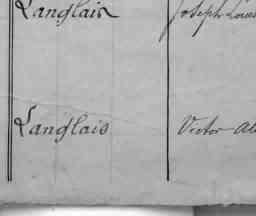 Langlais Joseph Louis
Langlais Victor